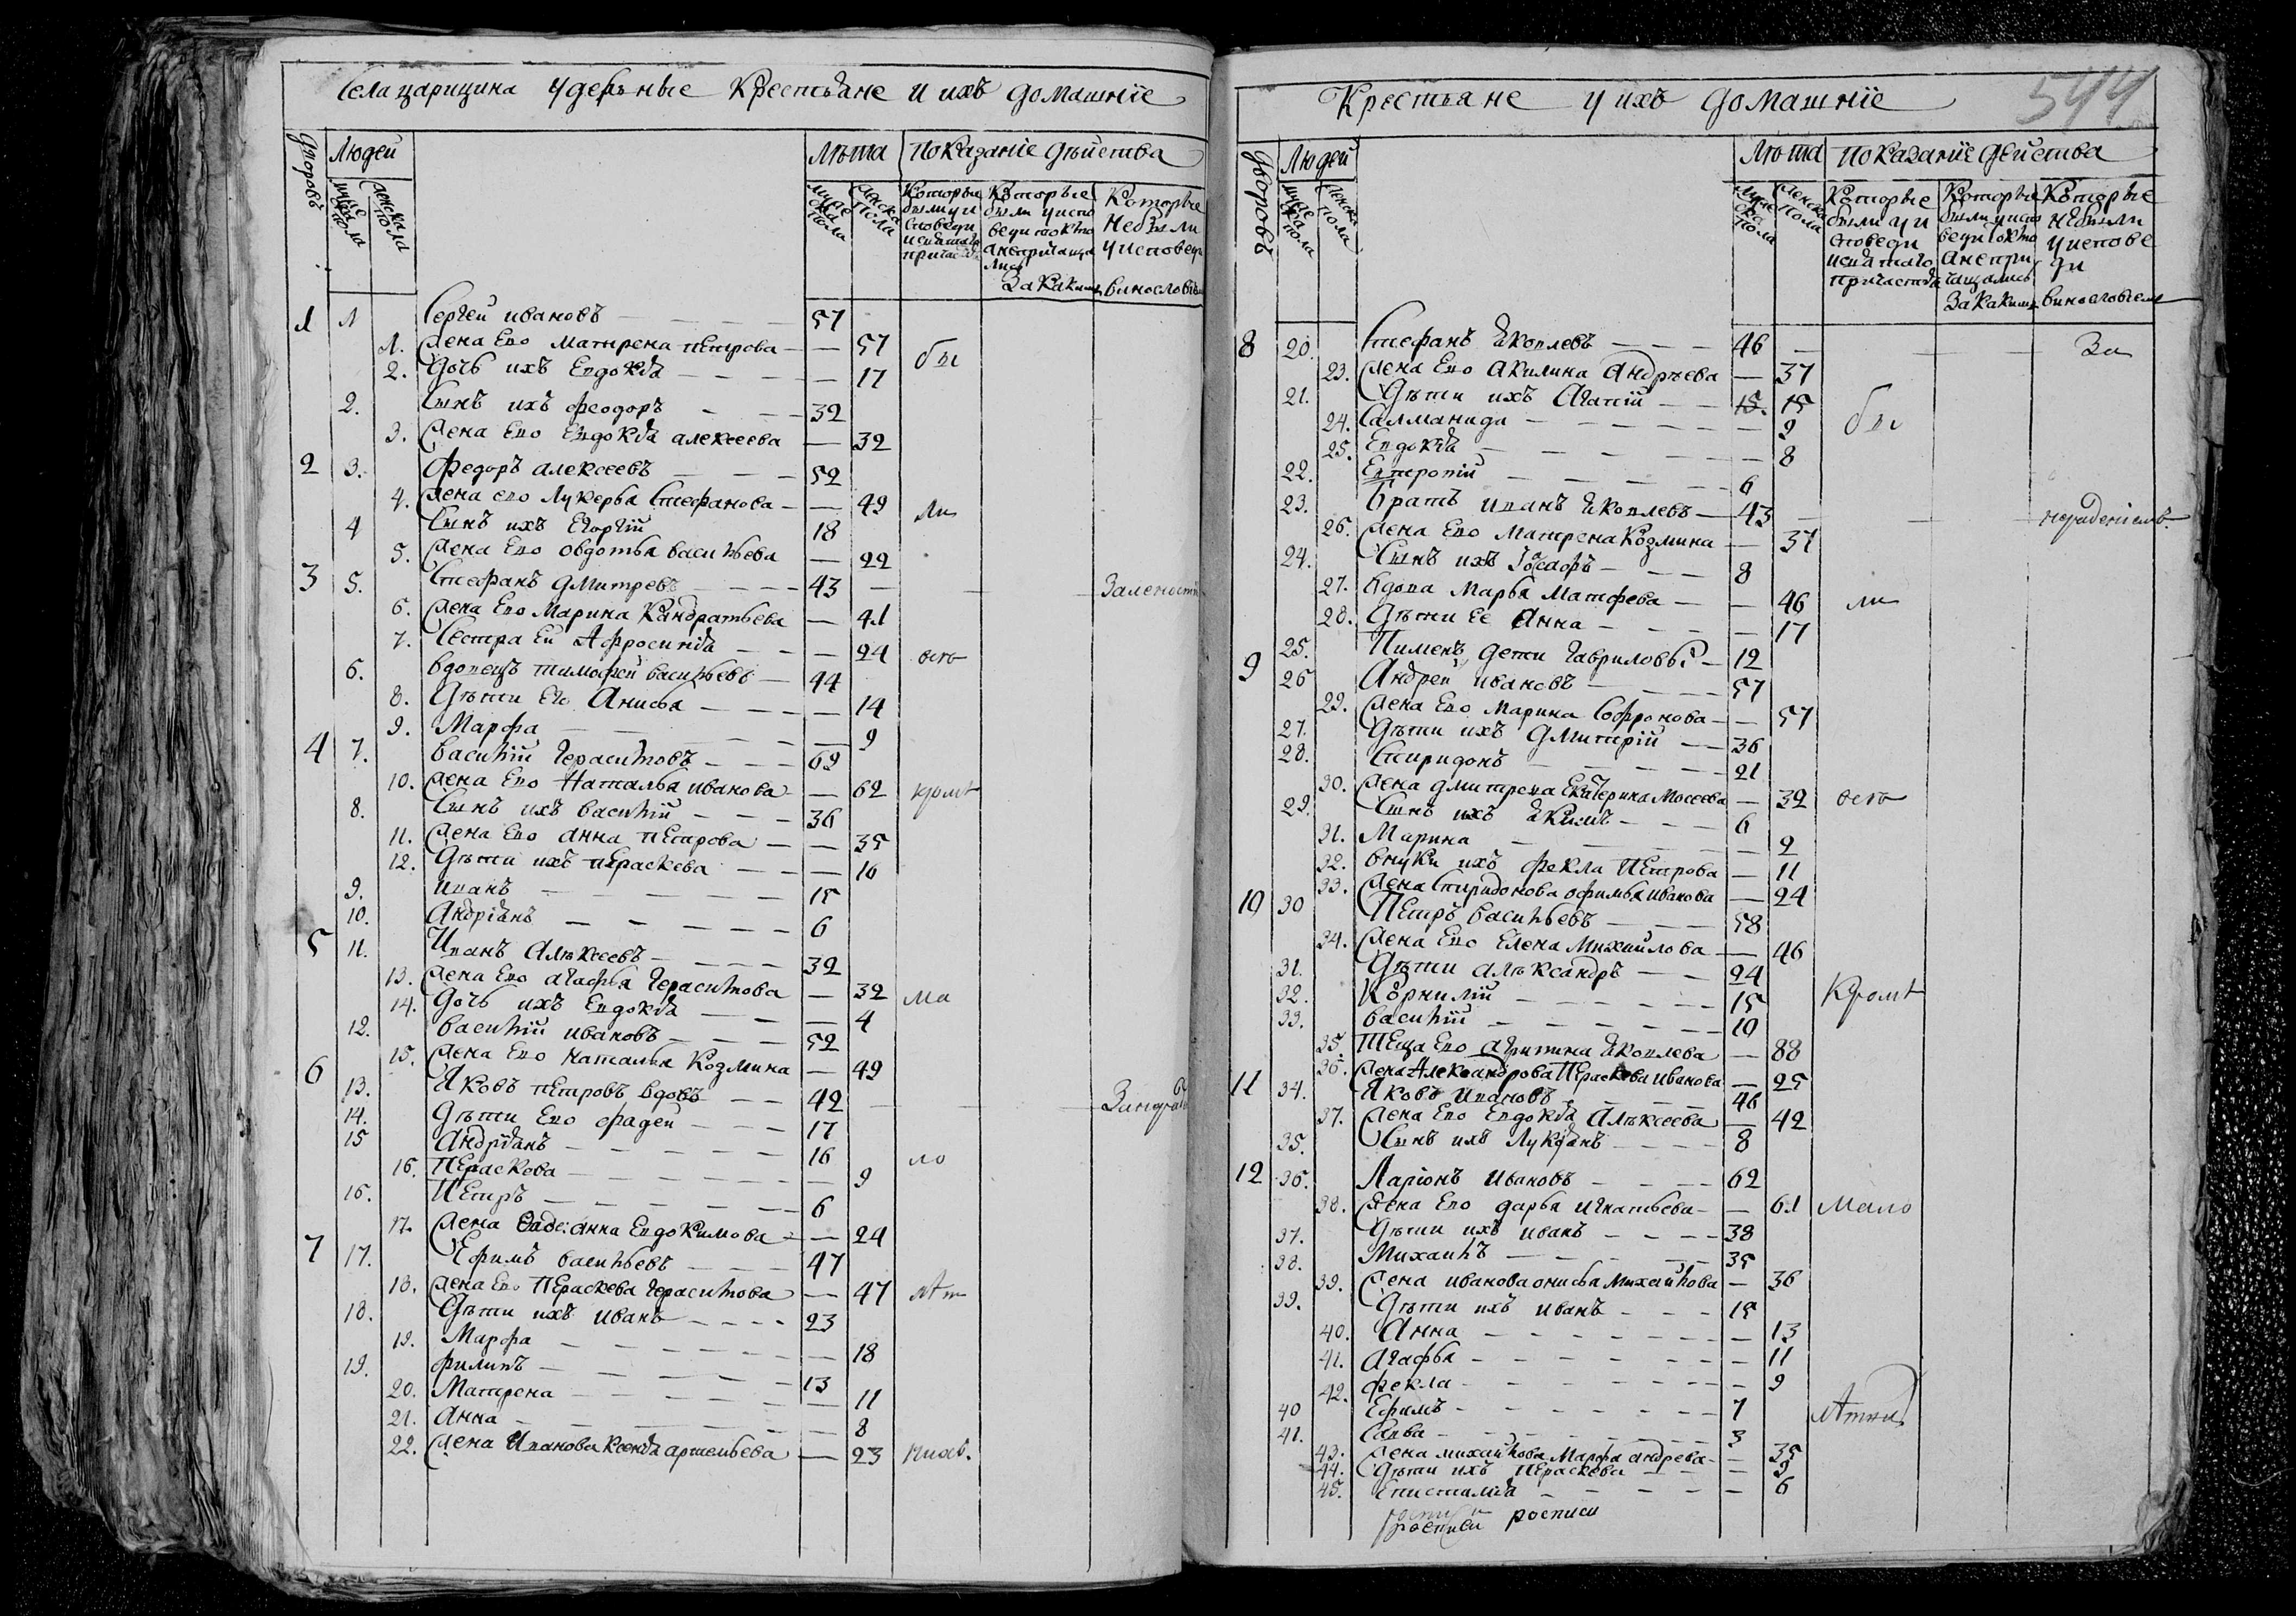 Села царицина удельные Крестьяне и ихъ домашніе
Дворовъ Людей Лѣта Показаніе дѣйства
муже ска пола женска пола муже ска пола женска пола Которые были у и споведи и святаго причаст Которые были у испо веди токмо а непричаща лись Которые Небыли у исповеди
За какимъ винословіемъ
1 1 Сергей ивановъ 57
1. Жена Ево Матрена петрова 57 бы
2. Дочь ихъ Евдокѣя 17
2. Сынъ ихъ феодоръ 32
3. Жена Ево Евдокѣя алексеева 32
2 3. Федоръ алексеевъ 52
4. Жена ево Лукерья Стефанова 49 ли
4 Сынъ ихъ Егоргій 18
5. Жена Ево овдотья васильева 22
3 5. Стефанъ дмитревъ 43
6. Жена Ево Марина Кандратьева 41
7. Сестра Ей Афросинія 24 всѣ
6. Вдовецъ тимофей васильевъ 44
8. Дѣти Ево Анисья 14
9. Марфа 9
4 7. василій герасимовъ 69
10. Жена Ево Наталья иванова 62 кромѣ
8. Сынъ ихъ василій 36
11. Жена Ево анна петрова 35
12. Дѣти ихъ пераскева 16
9. иванъ 15
10. Андріянъ 6
5 11. Иванъ Алѣксеевъ 32
13. Жена Ево агафья герасимова 32 ма
14. Дочь ихъ Евдокѣя 4
12. василій ивановъ 52
15. Жена Ево наталья Козмина 49
6 13. Яковъ петровъ вдовъ 42
14. Дѣти Ево фадей 17
15 Андріянъ 16 ло
16. Пераскева 9
16. Петръ 6
17. Жена Фаде: анна Евдокимова 24
7 17. Ефимъ васильевъ 47
18. Жена Ево Пераскева герасимова 47 лѣт
18. Дѣти ихъ иванъ 23
19. Марфа 18
19. филипъ 13
20. Матрена 11
21. Анна 8
22. Жена Иванова Ксенѣя артемьева 23 нихъ.
544
Крестьяне и ихъ домашніе
Дворовъ Людей Лѣта Показаніе действа
муже ска пола женска пола муже ска пола женска пола Которые были у и споведи и святаго причастія Которые были у испо веди токмо а непри чащались Которые небыли у испове ди
За какимъ винословіемъ
8 20. Стефанъ Яковлевъ 46 За
23. Жена Ево Акилина Андрѣева 37
21. Дѣти ихъ Агапій 15. 15
24. Салманида 9 бы
25. Евдокѣя 8
22. Евтропій 6
23. Братъ иванъ Яковлевъ 43 нераденіемъ
26. Жена Ево Матрена Козмина 37
24. Сынъ ихъ Іосафъ 8
27. Вдова Марья Матфева 46 ли
28. Дѣти Ее Анна 17
25. Пименъ дети гавриловы 12
9 26 Андрей ивановъ 57
29. Жена Ево Марина Софронова 57
27. Дѣти ихъ Дмитрій 36
28. Спиридонъ 21
30. Жена дмитрева Екатерина Мосеева 32 всѣ
29. Сынъ ихъ Якимъ 6
31. Марина 2
32. внуки ихъ фекла Петрова 11
33. Жена Спиридонова офимья иванова 24
10 30 Петръ васильевъ 58
34. Жена Ево Елена Михайлова 46
31. Дѣти алѣксандръ 24
32. Корнилій 15 Кромѣ
33. василій 10
35. Теща Ево агрипина Яковлева 88
36. Жена Александрова Пераскева иванова 25
11 34. Яковъ Ивановъ 46
37. Жена Ево Евдокѣя Алѣксеева 42
35. Сынъ ихъ Лукіянъ 8
12 36. Ларіонъ ивановъ 62
38. Жена Ево дарья игнатьева 61 Мало
37. Дѣти ихъ иванъ 38
38. Михаилъ 35
39. Жена иванова онисья Михайлова 36
39. Дѣти ихъ иванъ 15
40. Анна 13
41. Агафья 11
42. фекла 9
40 Ефимъ 7 лѣтних
41. Савва 3
43. Жена михайлова Марфа андрева 35
44. Дѣти ихъ Пераскева 9
45. Епистимія 6
росписи росписи